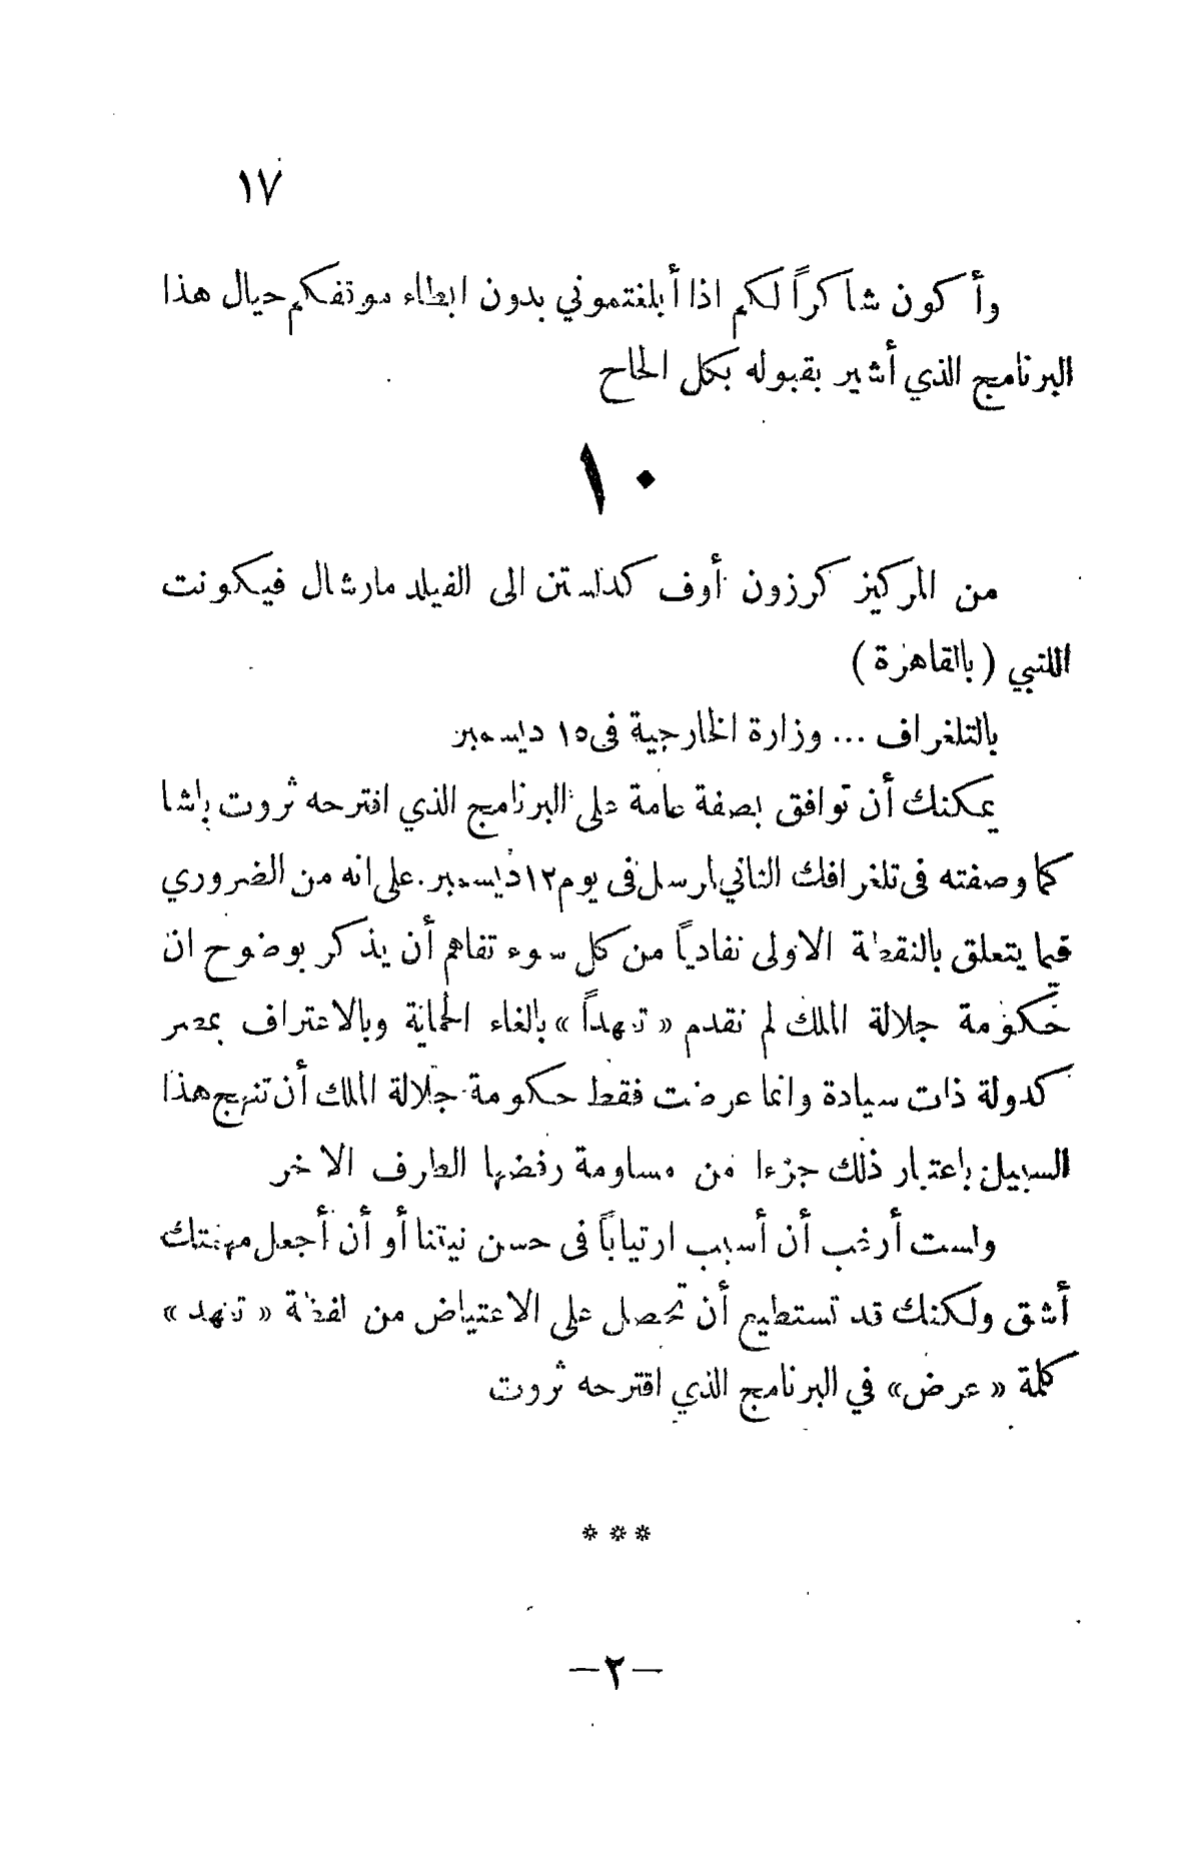 ١٧
وأكون شاكراً لكم اذا أبلغتموني بدون ابطاء موقفكم حيال هذا
البرنامج الذي أشير بقبوله بكل الحاح
١٠
من المركيز كرزون أوف كدلستن الى الفيلد مارشال فيكونت
اللنبي (بالقاهرة)
بالتلغراف ... وزارة الخارجية فى ١٥ ديسمبر
يمكنك أن توافق بصفة عامة على البرنامج الذي اقترحه ثروت باشا
كما وصفته فى تلغرافك الثاني المرسل فى يوم ١٢ ديسمبر. على انه من الضروري
فيما يتعلق بالنقطة الاولى تفادياً من كل سوء تفاهم أن يذكر بوضوح ان
حكومة جلالة الملك لم تقدم «تعهداً» بالغاء الحماية وبالاعتراف بمصر
كدولة ذات سيادة وانما عرضت فقط حكومة جلالة الملك أن تنهج هذا
السبيل باعتبار ذلك جزءا من مساومة رفضها الطرف الاخر
ولست أرغب أن أسبب ارتياباً فى حسن نيتنا أو أن أجعل مهمتك
أشق ولكنك قد تستطيع أن تحصل على الاعتياض من لفظة «تعهد»
كلمة «عرض» في البرنامج الذي اقترحه ثروت
***
—٢—